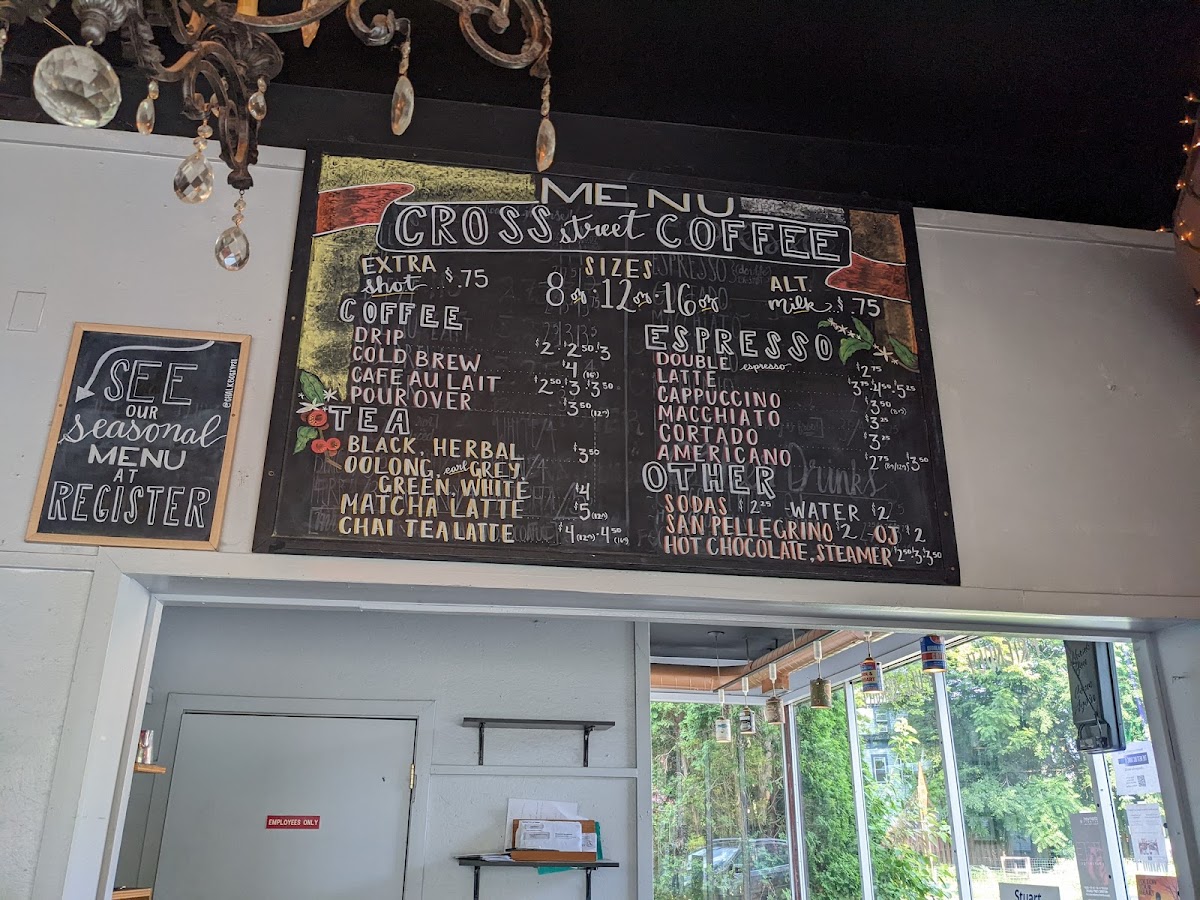 MENU
CROSS street COFFEE
EXTRA shot $.75
SIZES
8oz 12oz 16oz
ALT. milk $.75
COFFEE
DRIP $2 $2.50 $3
COLD BREW $4 (16oz)
CAFE AU LAIT $2.50 $3 $3.50
POUR OVER $3.50 (12oz)
TEA
BLACK, HERBAL $3.50
OOLONG, earl GREY
GREEN, WHITE $4
MATCHA LATTE $5 (12oz)
CHAI TEA LATTE $4 (12oz) - 4.50 (16oz)
ESPRESSO
DOUBLE espresso $2.75
LATTE $3.75 $4.50 $5.25
CAPPUCCINO $3.50 (8oz)
MACCHIATO $3.25
CORTADO $3.25
AMERICANO $2.75 (8oz/12oz) $3.50
OTHER
SODAS $2.25 -WATER $2
SAN PELLEGRINO $2 OJ $2
HOT CHOCOLATE, STEAMER $2.50 $3 $3.50
SEE
OUR
seasonal
MENU
AT
REGISTER
EMPLOYEES ONLY
Stuart